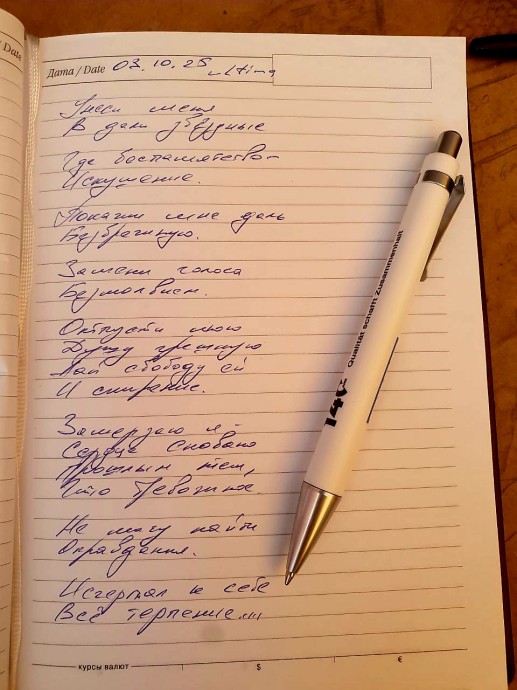 Date
Дата / Date 03.10.25
Унеси меня
В дали звёздные
Где беспамятство -
Искушение.
Покажи мне даль
Безбрежную.
Замени голоса
Безмолвием.
Отпусти мою
Душу грешную
Дай свободу ей
И смирение.
Замерзаю я -
Сердце сковано
Прошлым тем,
Что тревожное.
Не могу найти
Оправдания.
Исчерпал к себе
Всё терпение....
курсы валют
$
€
Qualität schafft Zusammenheit